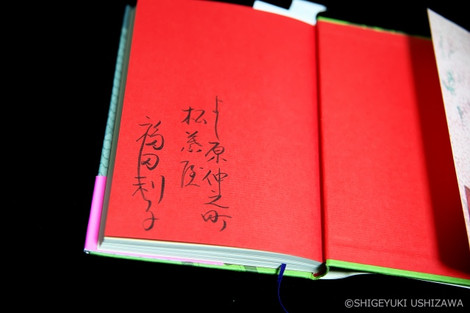 よし原仲之町
松葉屋
福田利子
©SHIGEYUKI USHIZAWA